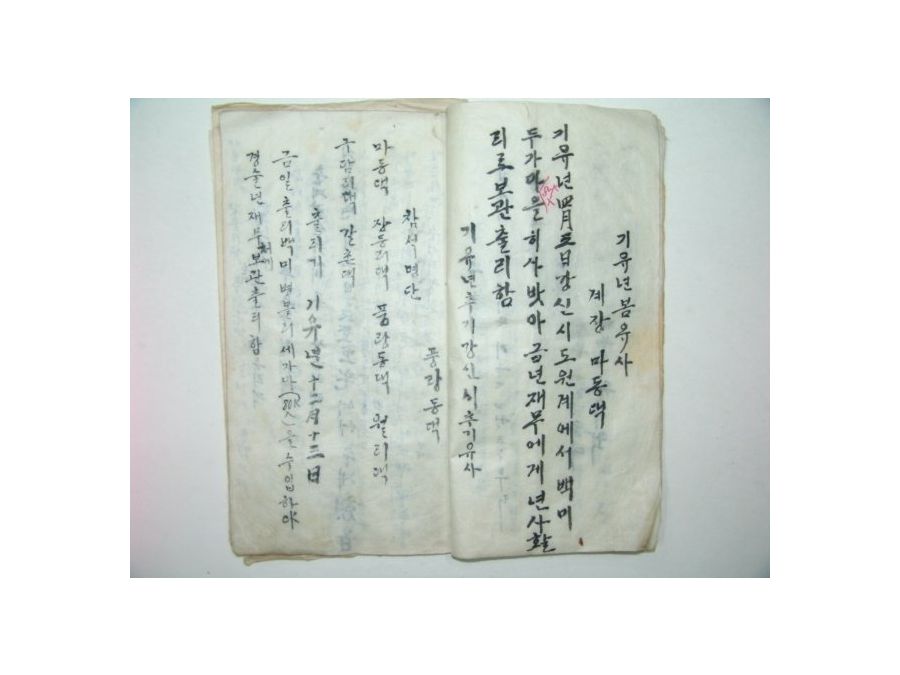 기유년봄유사
계장 마동댁
기유년四月三日강신시도원계에서 백미
두가마을히사밧아 금년재무에게 년사활
리로보관출리함
기유년추기강신시추기유사
풍량동댁
참석명단
마동댁 장동리댁 풍량동댁 월티댁
구담리댁 갈촌댁
출리기 기유년十二月十三日
금일출리백미 세가마(80K入)을수입하야
경술년재무 보관출리함